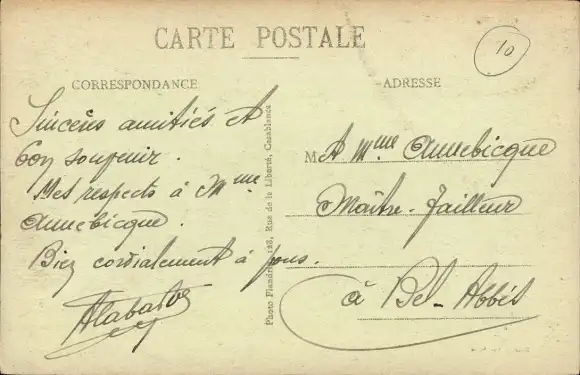 CARTE POSTALE
10
CORRESPONDANCE
ADRESSE
Sincères amitiés et
bon souvenir.
Mes respects à Mme
Annebicque.
Bien cordialement à vous.
Photo Flandrin, 128, Rue de la Liberté, Casablanca
M A Mme Annebicque
Maître-Tailleur
à Bel-Abbès